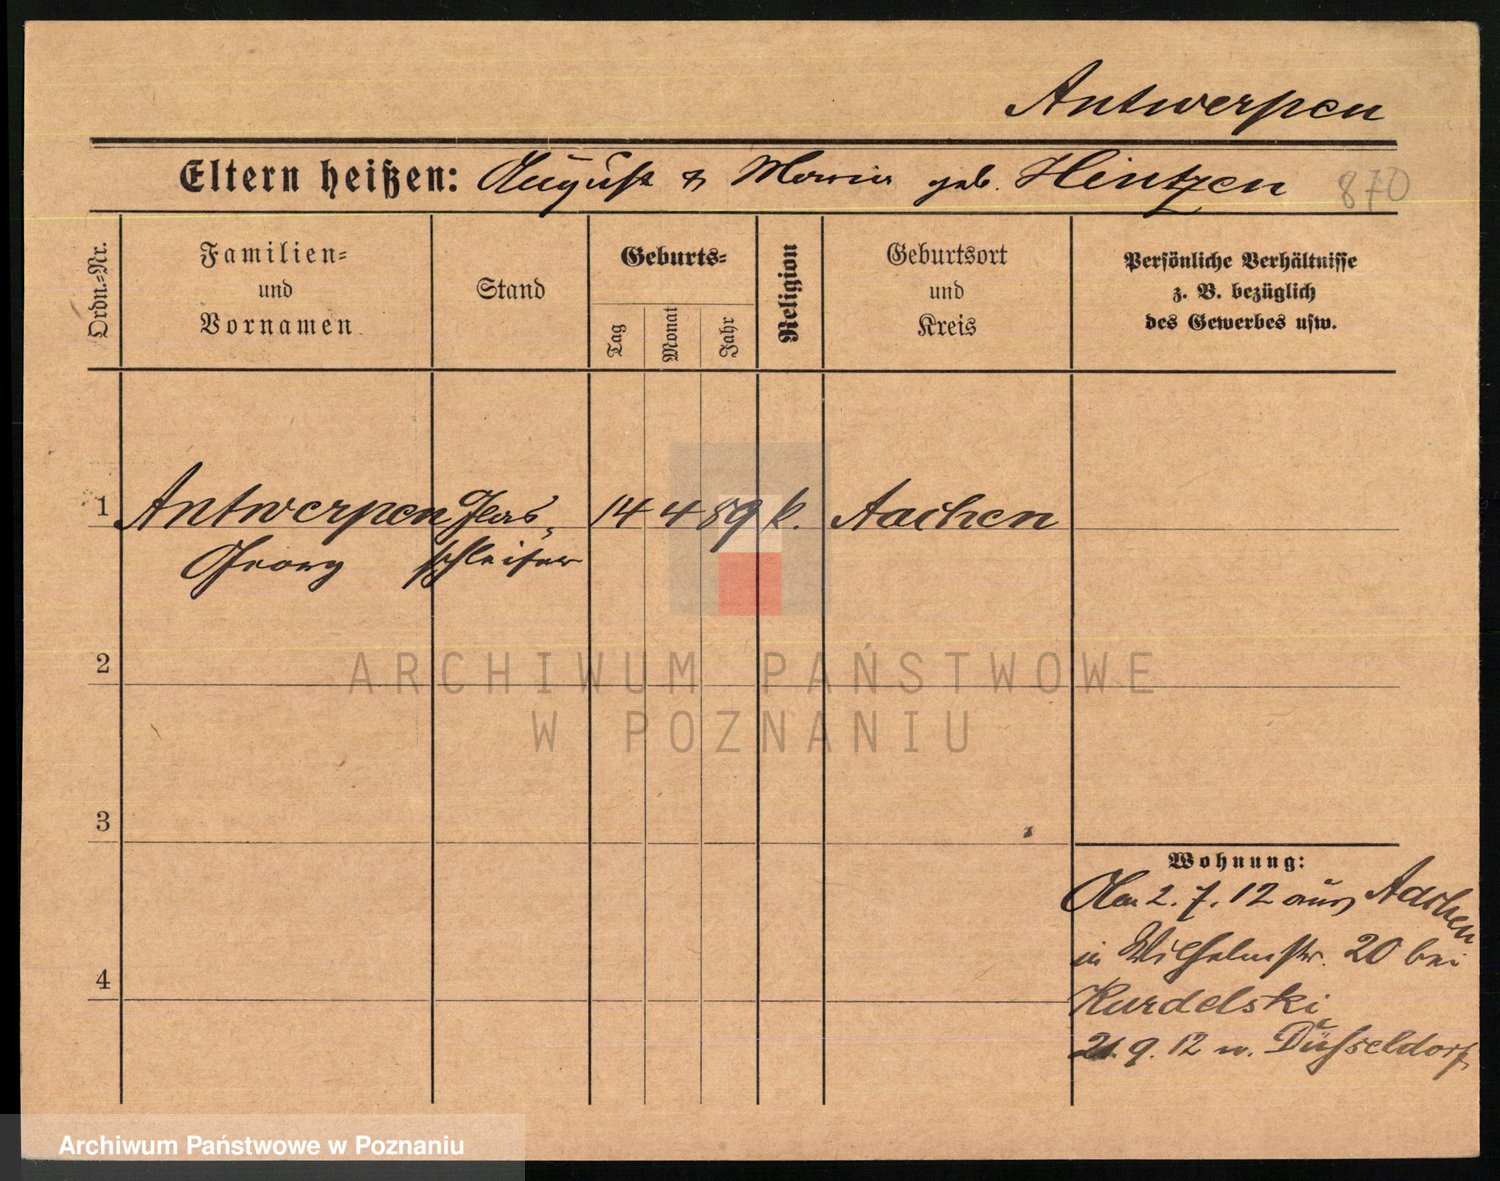 Antwerpen
Eltern heißen: August & Maria geb. Hintzen 870
Ordn.-Nr.
Familien-
und
Vornamen
Stand
Geburts-
Tag
Monat
Jahr
Religion
Geburtsort
und
Kreis
Persönliche Verhältnisse
z. B. bezüglich
des Gewerbes usw.
1 Antwerpen Glas- 14 4 89 k. Aachen
Georg schleifer
2
ARCHIWUM PAŃSTWOWE
W POZNANIU
3
Wohnung:
Am 2. 7. 12 aus Aachen
in Wilhelmstr. 20 bei
4
Kurdelski
21. 9. 12 n. Düsseldorf
Archiwum Państwowe w Poznaniu